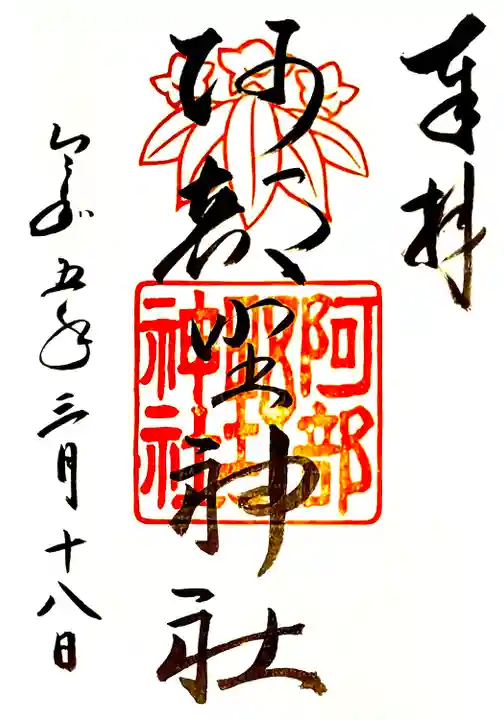 奉拝
阿部野神社
阿部
野
神社
令和五年三月十八日